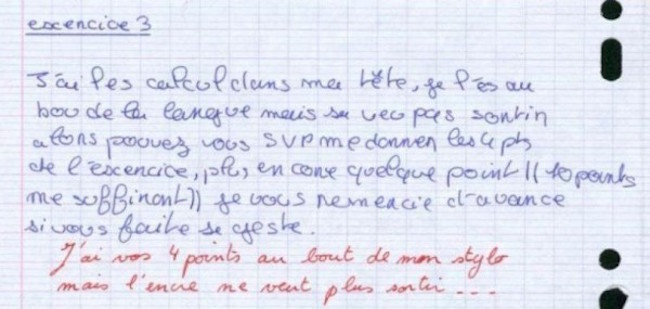 exencice 3
J'ai les calcul dans ma tête, je l'es au
bou de la langue mais sa veu pas sortin
alons pouvez vous SVP me donnen les 4 pts
de l'exencice, plus encone quelque point (( 10 points
me suffinont)) je vous nemencie d'avance
si vous faite se geste.
J'ai vos 4 points au bout de mon stylo
mais l'encre ne veut plus sortir ---